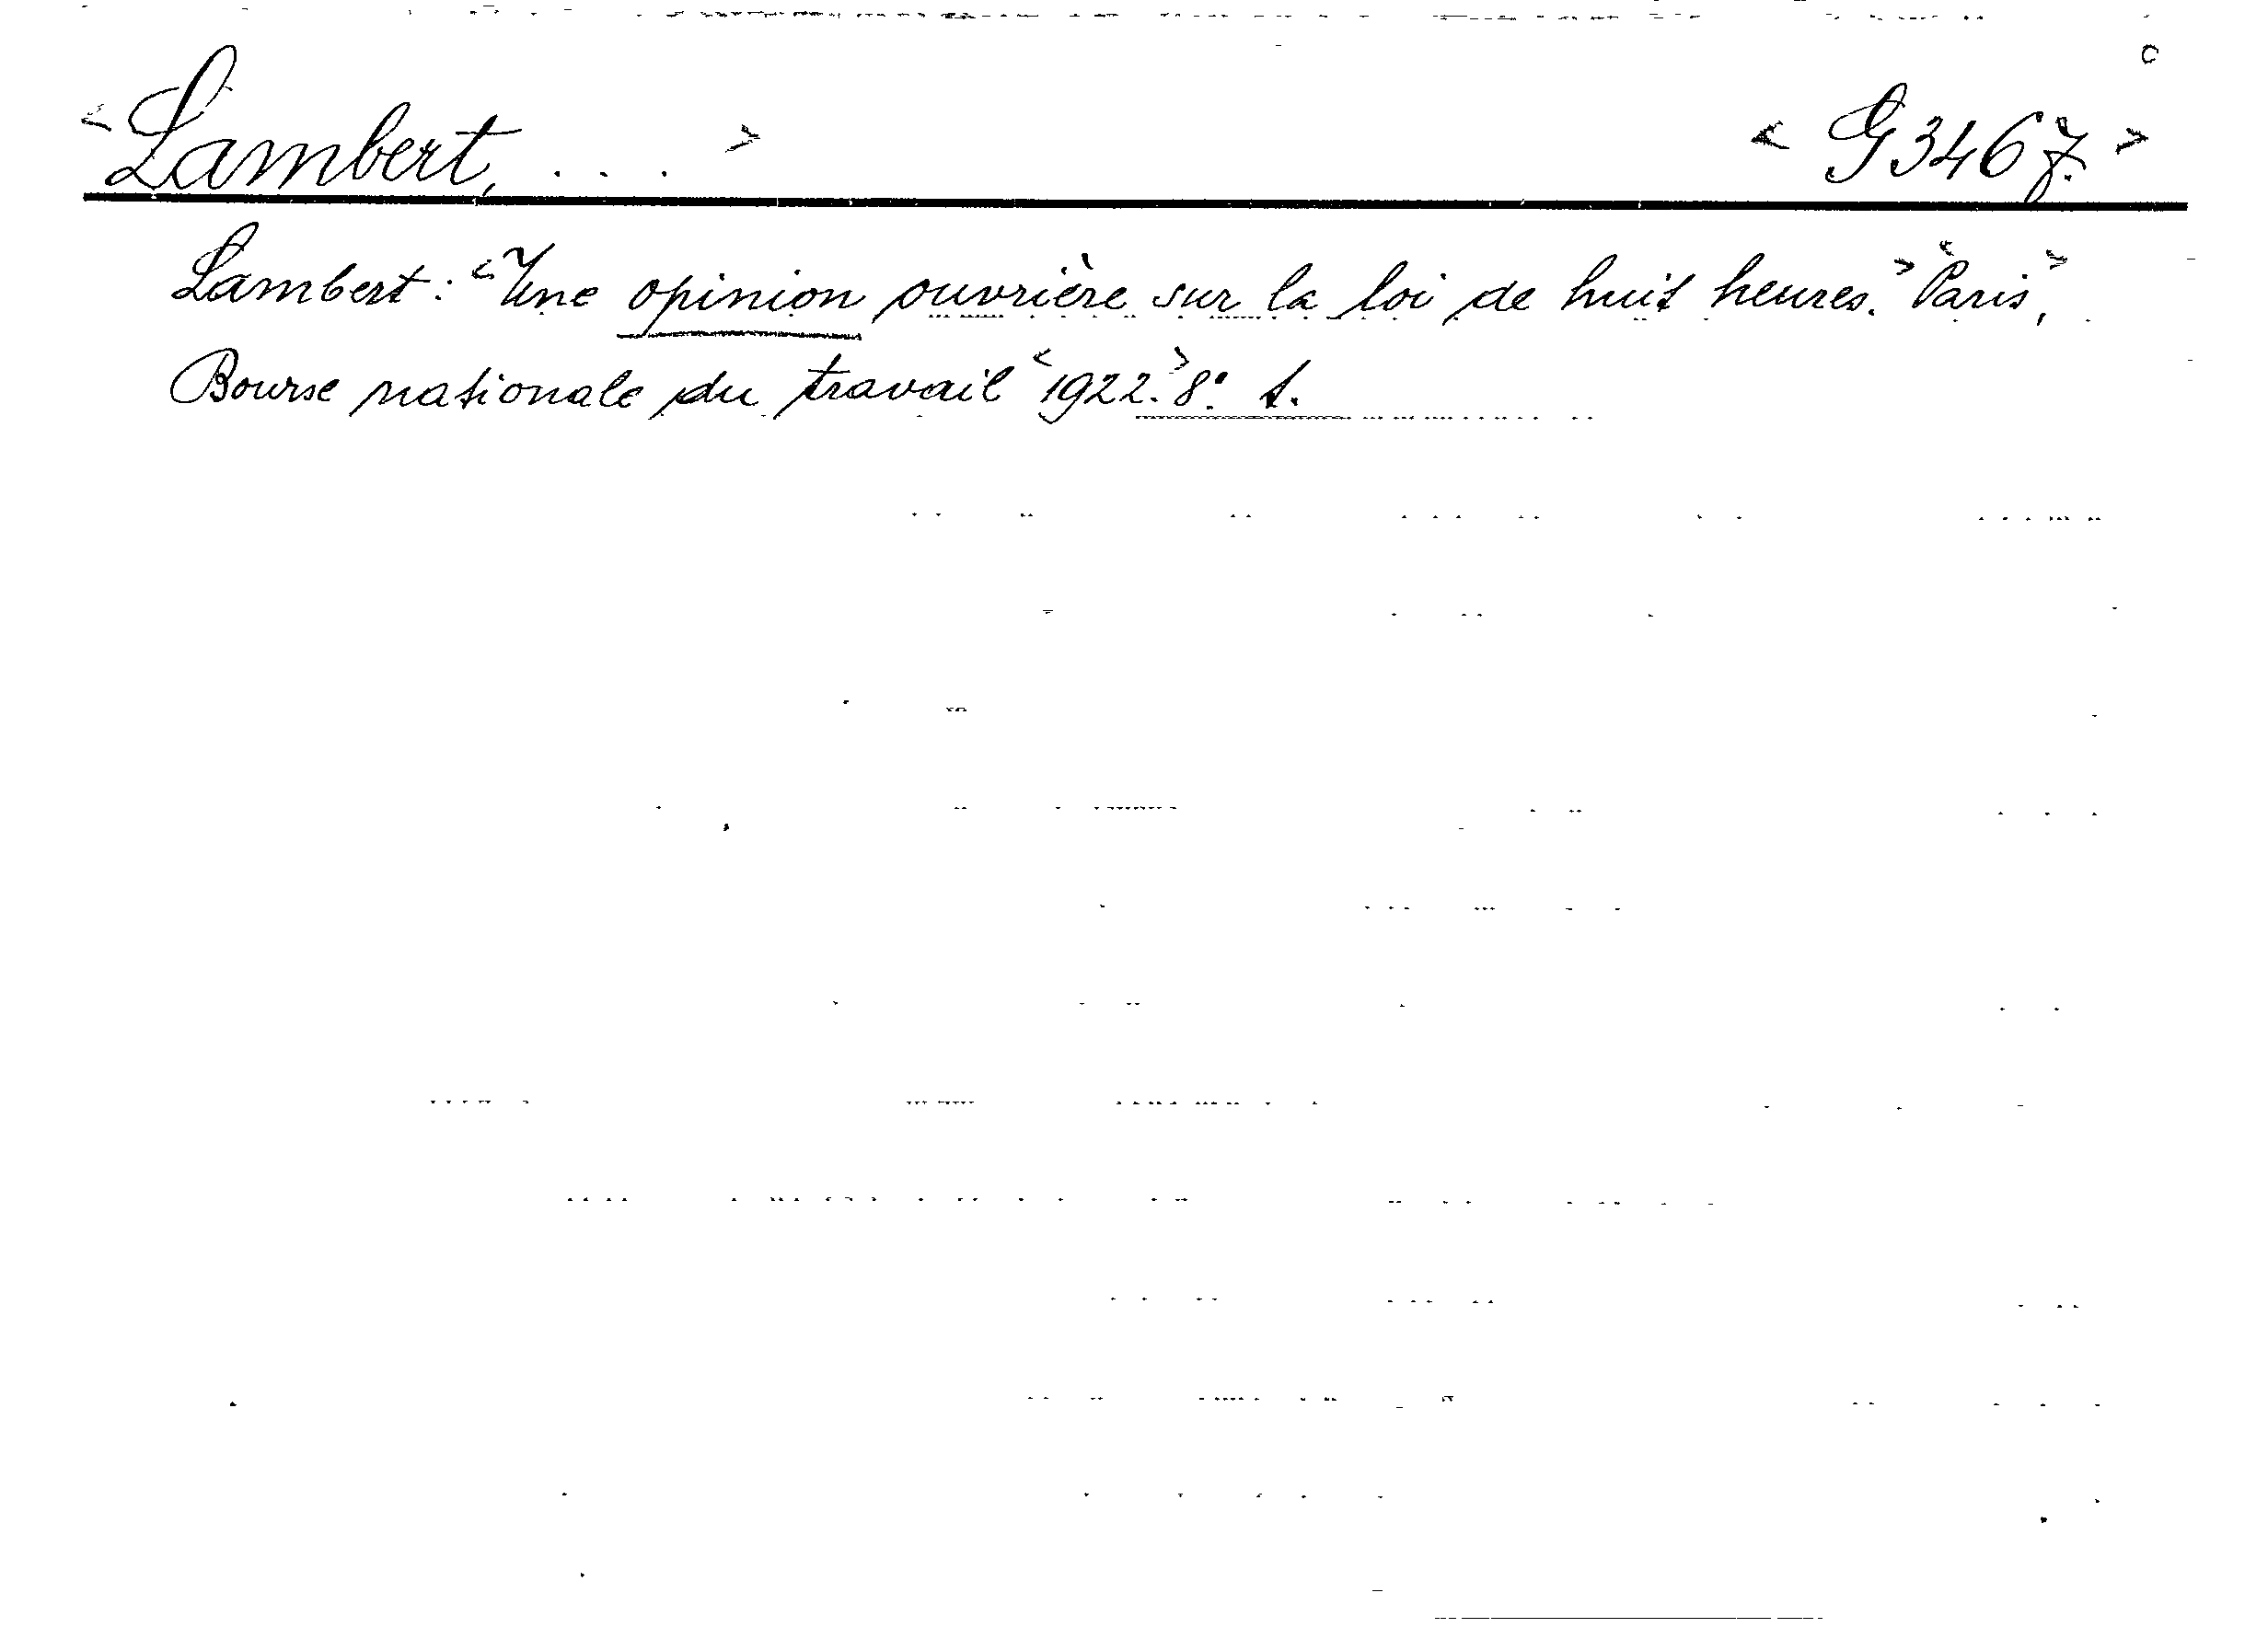 <Lambert, . . . > <G 3467.>
Lambert: <Une opinion ouvrière sur la loi de huit heures.> <Paris>,
Bourse nationale du travail <1922.> 8°. 1.